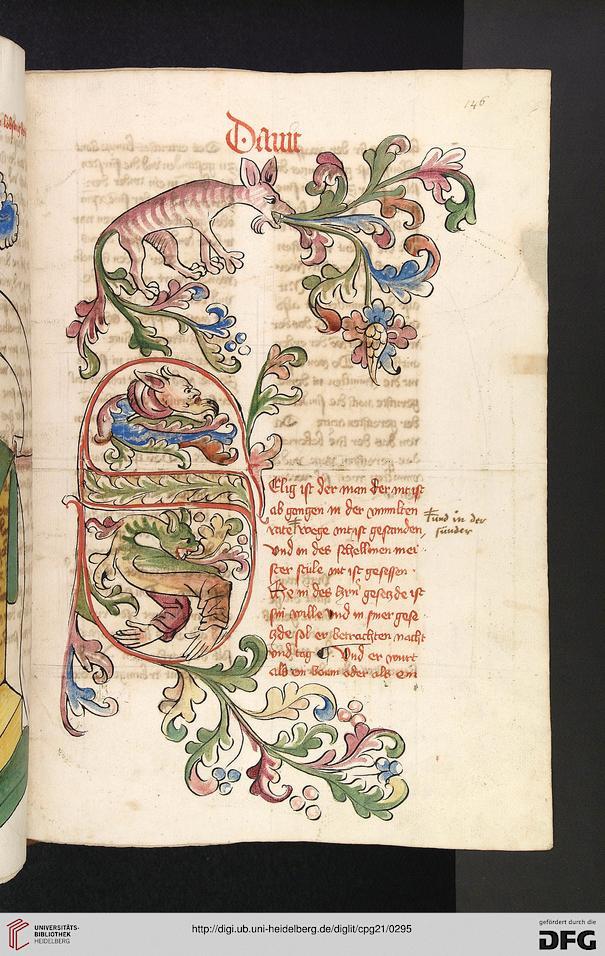 146
Dauit
Elig ist der man der nit ist
ab gangen in der vnmilten
rate vnd in der sunder wege nit ist gestanden
vnd in des schelkinen mei
ster stule nit ist gesessen
in des hrn gesetzde ist
sin wille vnd in siner gese
tzde sol er betrachten nacht
vnd tag Vnd er wurt
als ein boum oder als ein
UNIVERSITÄTS-
BIBLIOTHEK
HEIDELBERG
http://digi.ub.uni-heidelberg.de/diglit/cpg21/0295
gefördert durch die
DFG